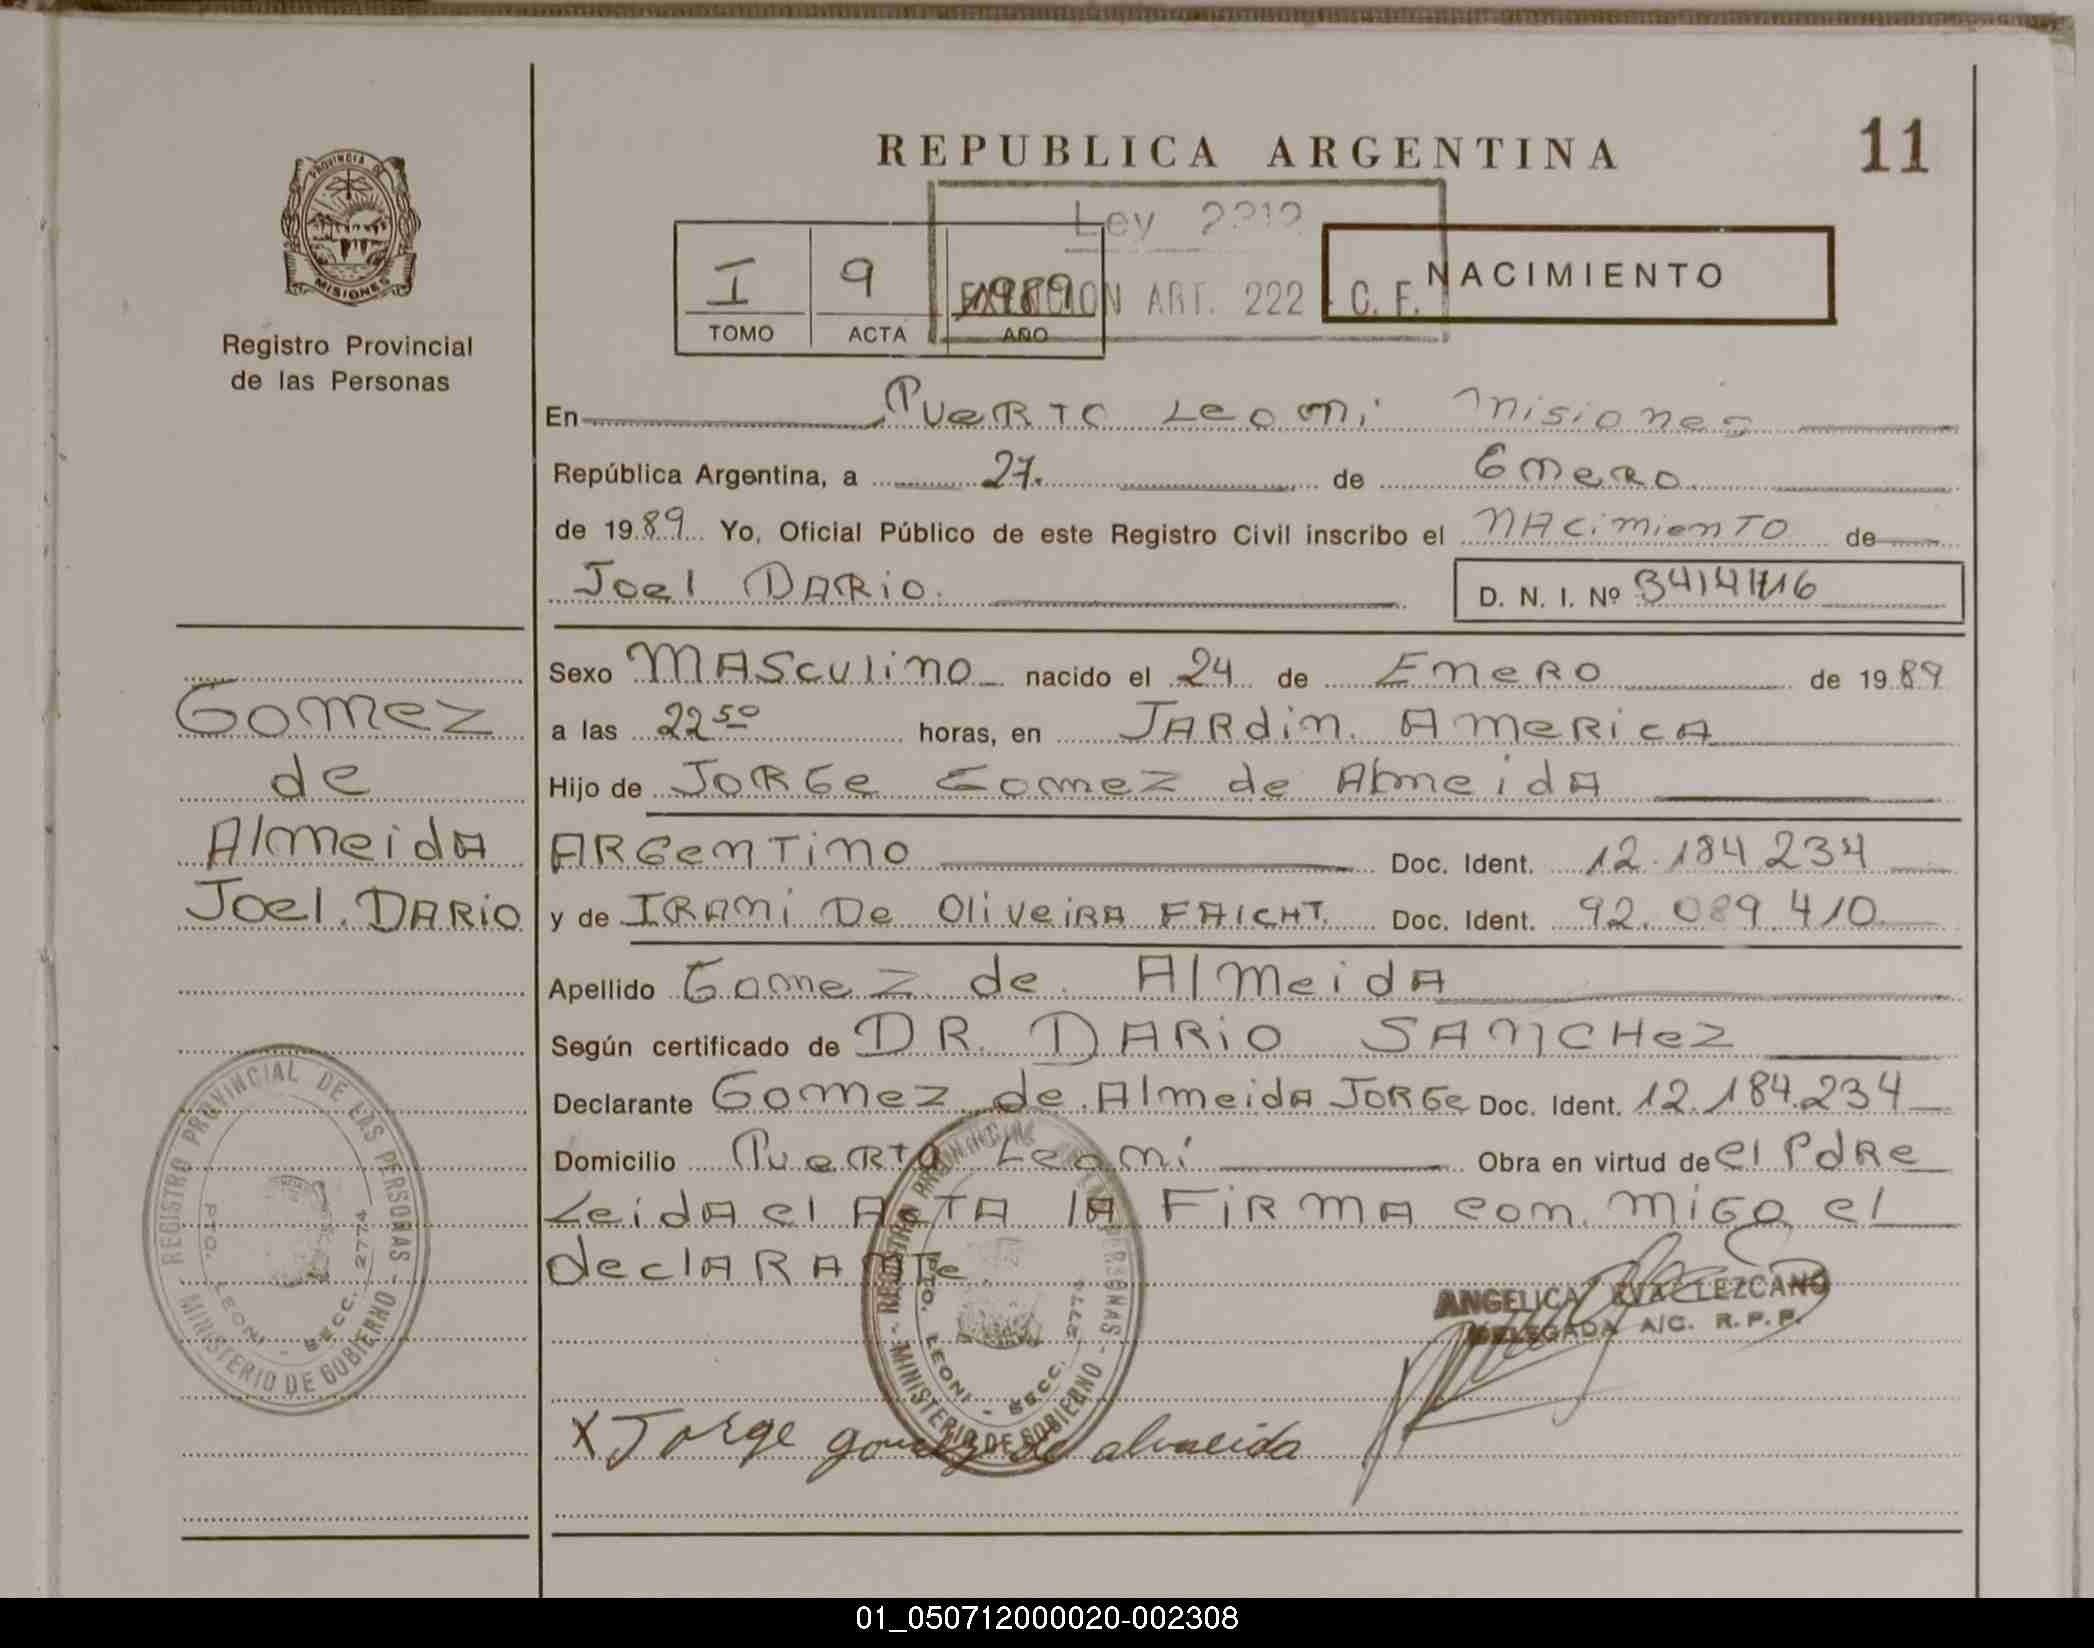 REPUBLICA ARGENTINA
11
PROVINCIA DE
MISIONES
Registro Provincial
de las Personas
Ley
I 9 1989
TOMO ACTA AÑO
ART. 222 C. F.
NACIMIENTO
En Puerto Leoni Misiones
República Argentina, a 27. de Enero
de 1989 Yo, Oficial Público de este Registro Civil inscribo el NAcimienTO de
Joel DARio.
D. N. I. Nº
Sexo MASculino nacido el 24 de Enero de 1989
a las 22 50 horas, en JARdin AmericA
Hijo de JORGe Gomez de AlmeidA
ARGenTino Doc. Ident. 12.184.234
y de IRAni De OliveiRA FAICHT. Doc. Ident. 92.089.410
Apellido Gomez de AlmeidA
Según certificado de DR. DARiO SANCHez
Declarante Gomez de AlmeidA JORGe Doc. Ident. 12.184.234
Domicilio Puerto Leoni Obra en virtud de el PdRe
Leida el ACTA lA FiRMA con migo el
declARANTe
Gomez
de
AlmeidA
Joel. DARiO
REGISTRO PROVINCIAL DE LAS PERSONAS
MINISTERIO DE GOBIERNO
PTO. LEONI - SECC. 2774
REGISTRO PROVINCIAL DE LAS PERSONAS
MINISTERIO DE GOBIERNO
PTO. LEONI - SECC. 2774
ANGELICA EVA LEZCANO
DELEGADA A/C. R.P.P.
X Jorge gomez de almeida
01_050712000020-002308